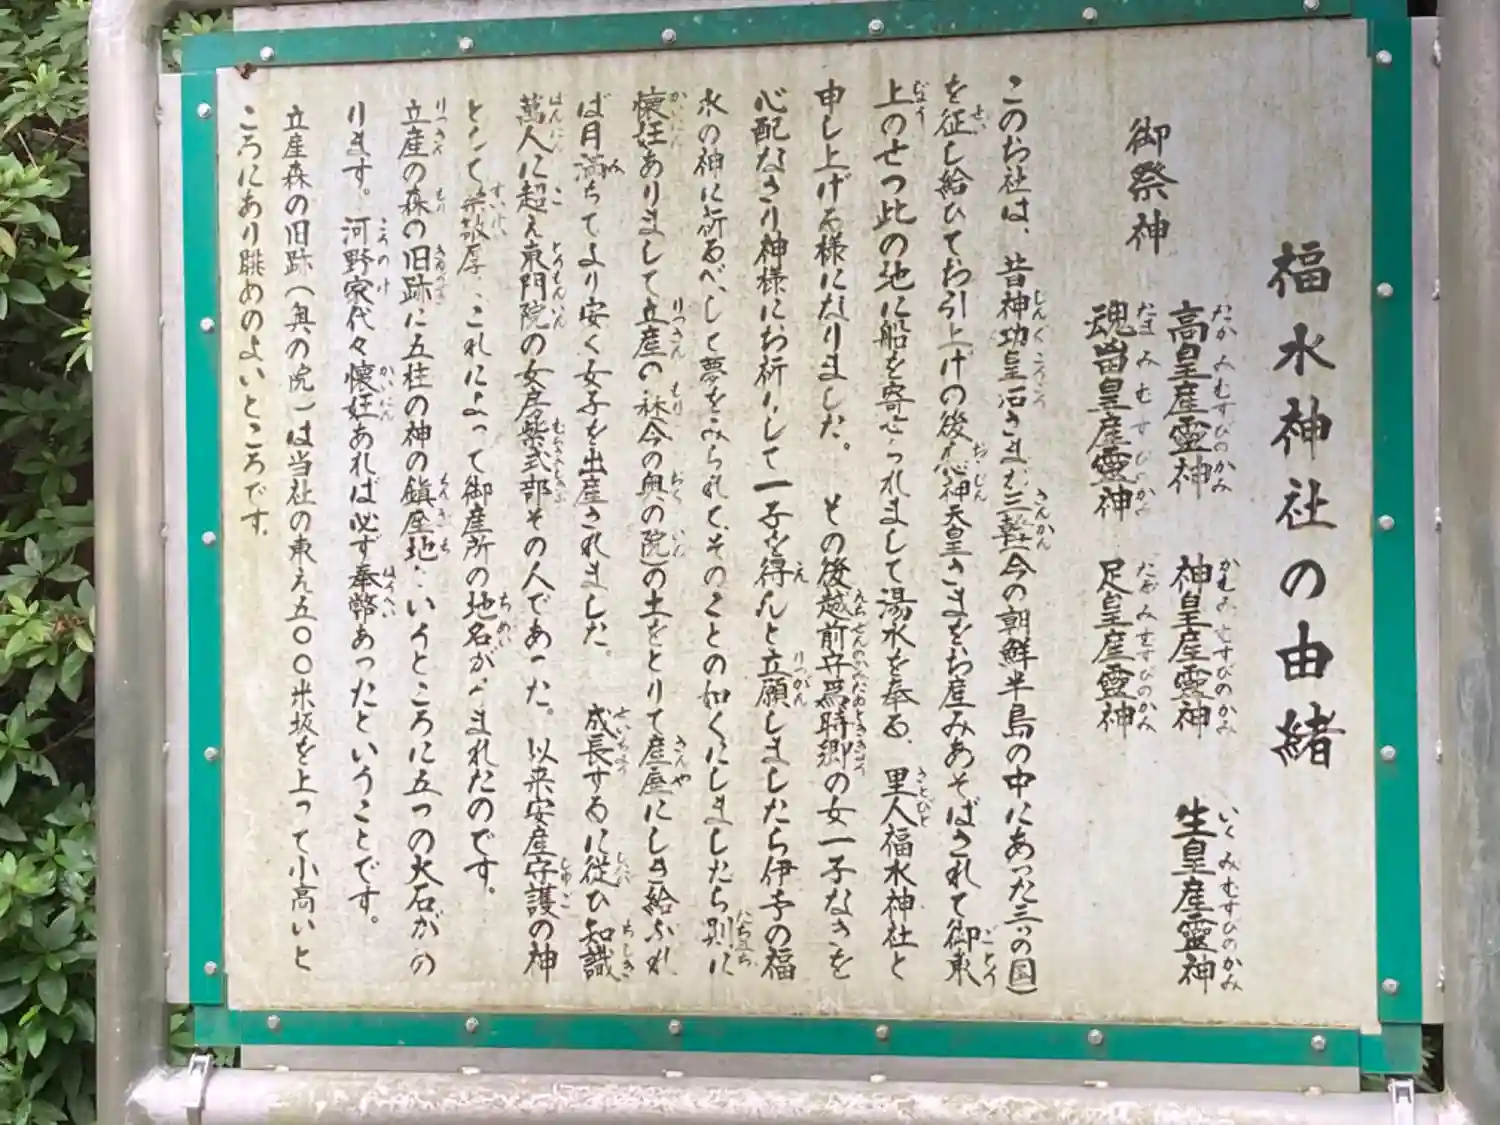 福水神社の由緒
御祭神
高皇産霊神 神皇産霊神 生皇産霊神
魂留皇産霊神 足皇産霊神
このお社は、昔神功皇后さまが三韓(今の朝鮮半島の中にあった三つの国)
を征し給ひてお引上げの後応神天皇さまをお産みあそばされて御東
上のせつ此の地に船を寄せられまして湯水を奉る、里人福水神社と
申し上げる様になりました。 その後越前守為時郷の女一子なきを
心配なさり神様にお祈りして一子を得んと立願しましたら伊予の福
水の神に祈るべしして夢をみられて、そのことの如くにしましたら別に
懐妊ありまして立産の森(今の奥の院)の土をとりて産屋にしき給ふれ
ば月満ちてより安く女子を出産されました。 成長するに従ひ知識
萬人に超え東門院の女房紫式部その人であった。以来安産守護の神
として崇敬厚くこれによって御産所の地名がうまれたのです。
立産の森の旧跡に五柱の神の鎮座地というところに五つの大石がの
ります。河野家代々懐妊あれば必ず奉幣あったということです。
立産森の旧跡(奥の院)は当社の東え五〇〇米坂を上って小高いと
ころにあり眺めのよいところです。